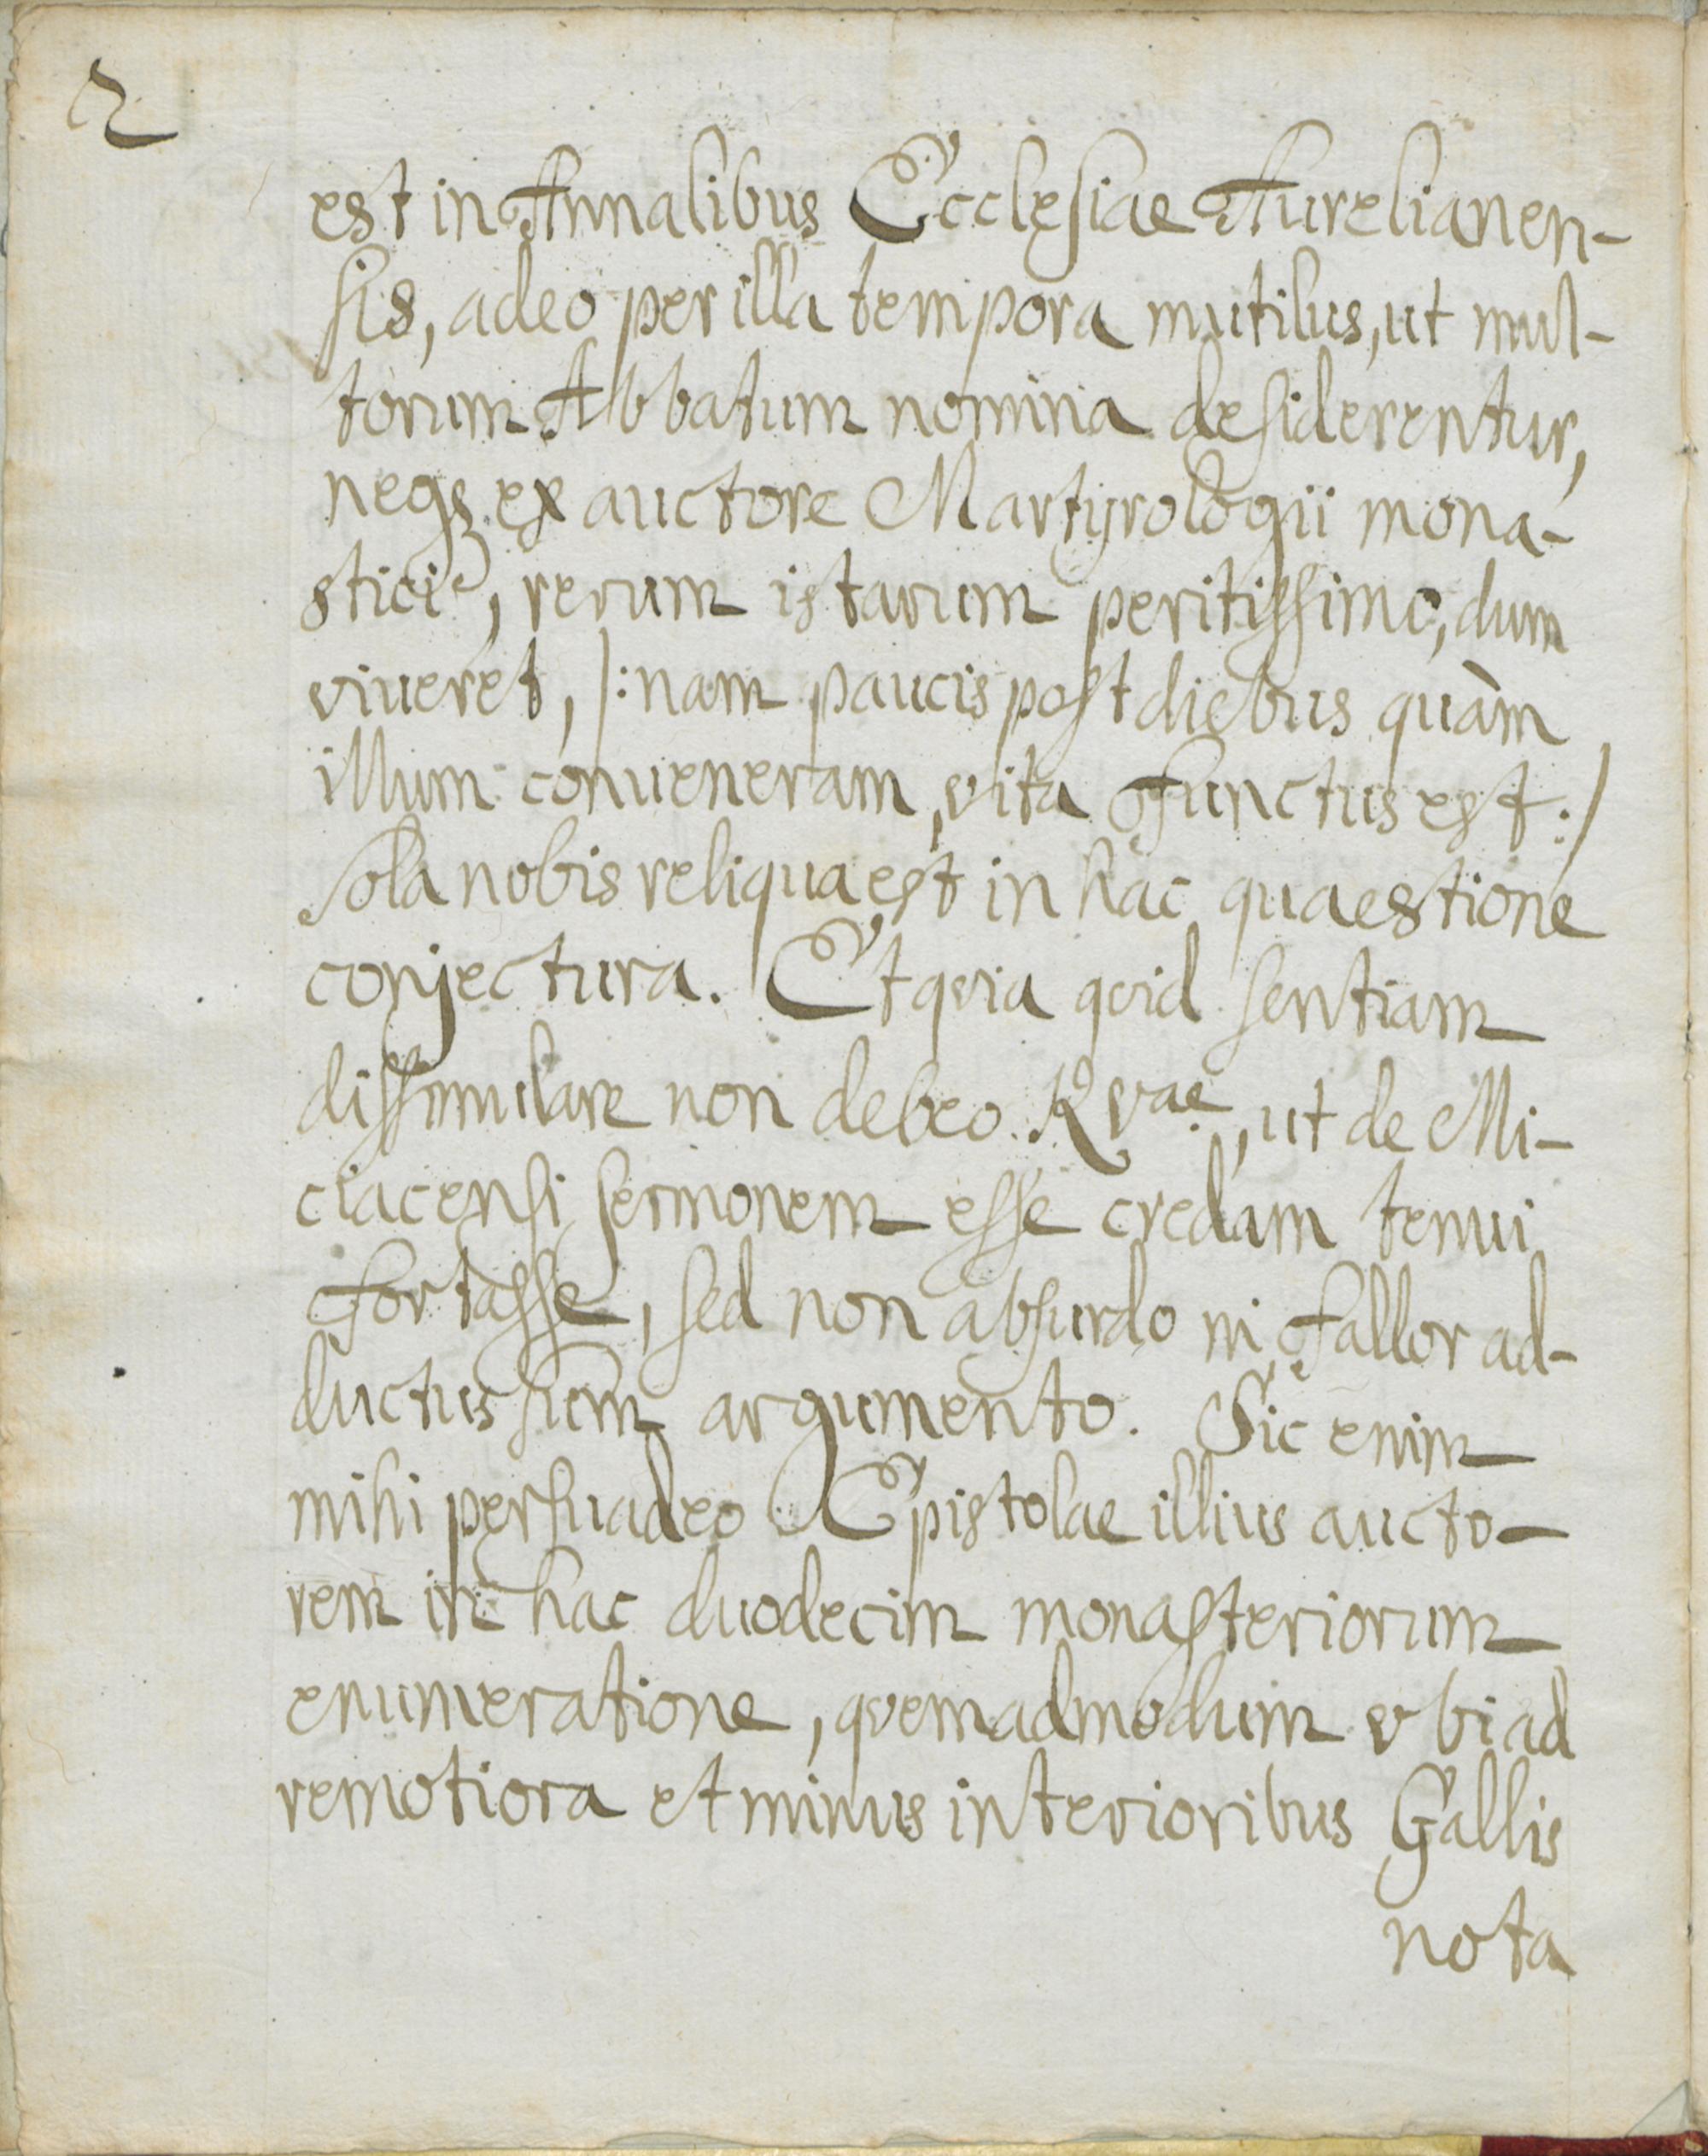 2
est in Annalibus Ecclesiae Aurelianen-
sis, adeo per illa tempora mutilus, ut mul-
torum Abbatum nomina desiderentur,
neqȝ ex auctore Martyrologii mona-
stici, rerum istarum peritissimo, dum
viueret, /: nam paucis post diebus quàm
illum conueneram, vita functus est :/
sola nobis reliqua est in hac quaestione
conjectura. Et qvia qvid sentiam
dissimulare non debeo Rvae, ut de Mi-
ciacensi sermonem esse credam tenui
fortasse, sed non absurdo ni fallor ad-
ductus sum argumento. Sic enim
mihi persuadeo Epistolae illius aucto-
rem in hac duodecim monasteriorum
enumeratione, qvemadmodum vbi ad
remotiora et minus interioribus Gallis
nota